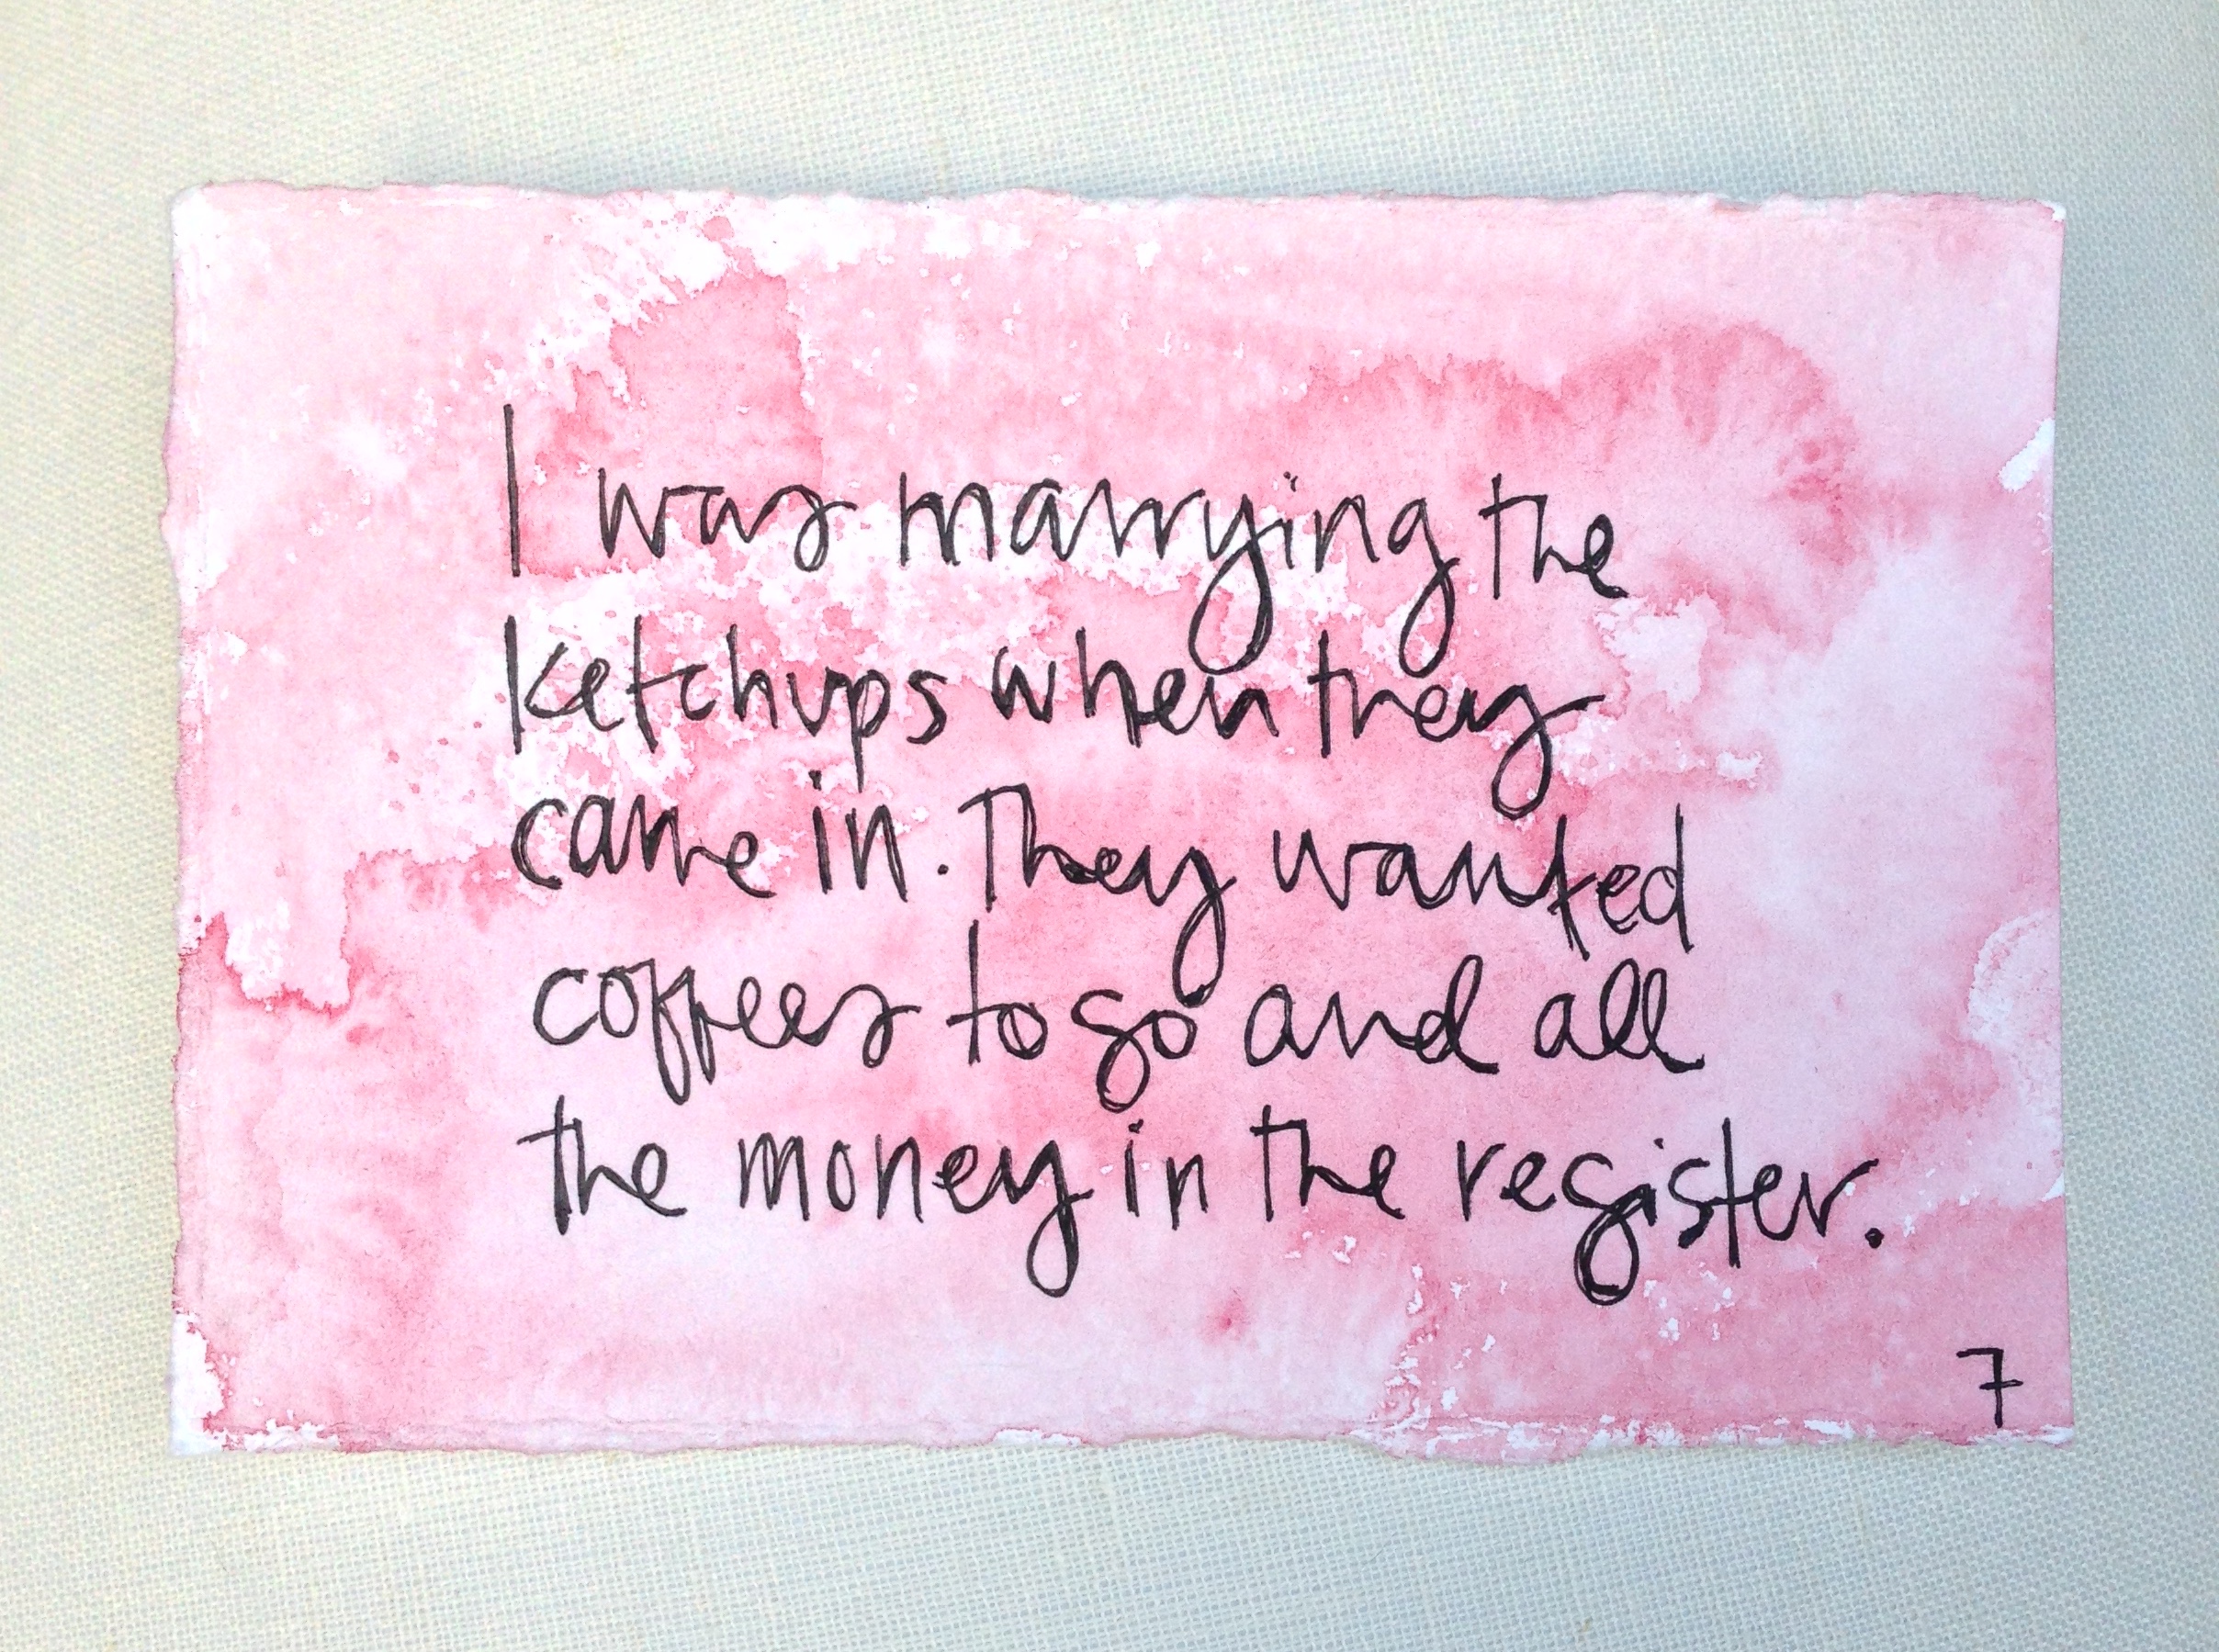 I was marrying the
ketchups when they
came in. They wanted
coffees to go and all
the money in the register.
7